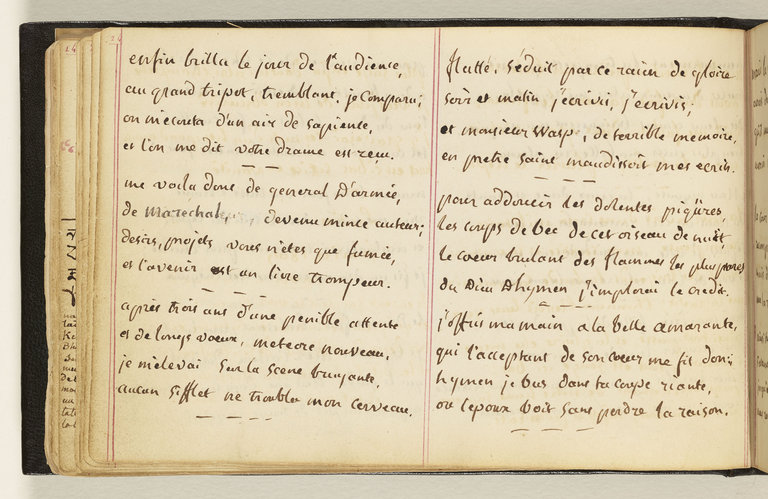 enfin brilla le jour de l'audience,
au grand tripot, tremblant, je comparu;
on m'ecouta d'un air de sapience,
et l'on me dit votre drame est recu.
me voila donc de general D'armée,
de Marechal, devenu mince auteur;
desirs, projets vous n'etes que fumée,
et l'avenir est un livre trompeur.
après trois ans d'une penible attente
et de longs voeux, meteore nouveau,
je m'elevai sur la scene bruyante,
aucun sifflet ne troubla mon cerveau.
flatté, séduit par ce raion de gloire
soir et matin j'ecrivis, j'ecrivis;
et monsieur Wasp, de terrible memoire,
en pretre saint maudissoit mes ecris.
pour addoucir les dolentes piqûres,
les coups de bec de cet oiseau de nuit,
le coeur brulant des flammes les plus pures
du Dieu Dhymen j'implorai le credit.
j'offris ma main a la belle amarante,
qui l'acceptant de son coeur me fit don;
hymen je bus dans ta coupe riante,
ou l'epoux boit sans perdre la raison.